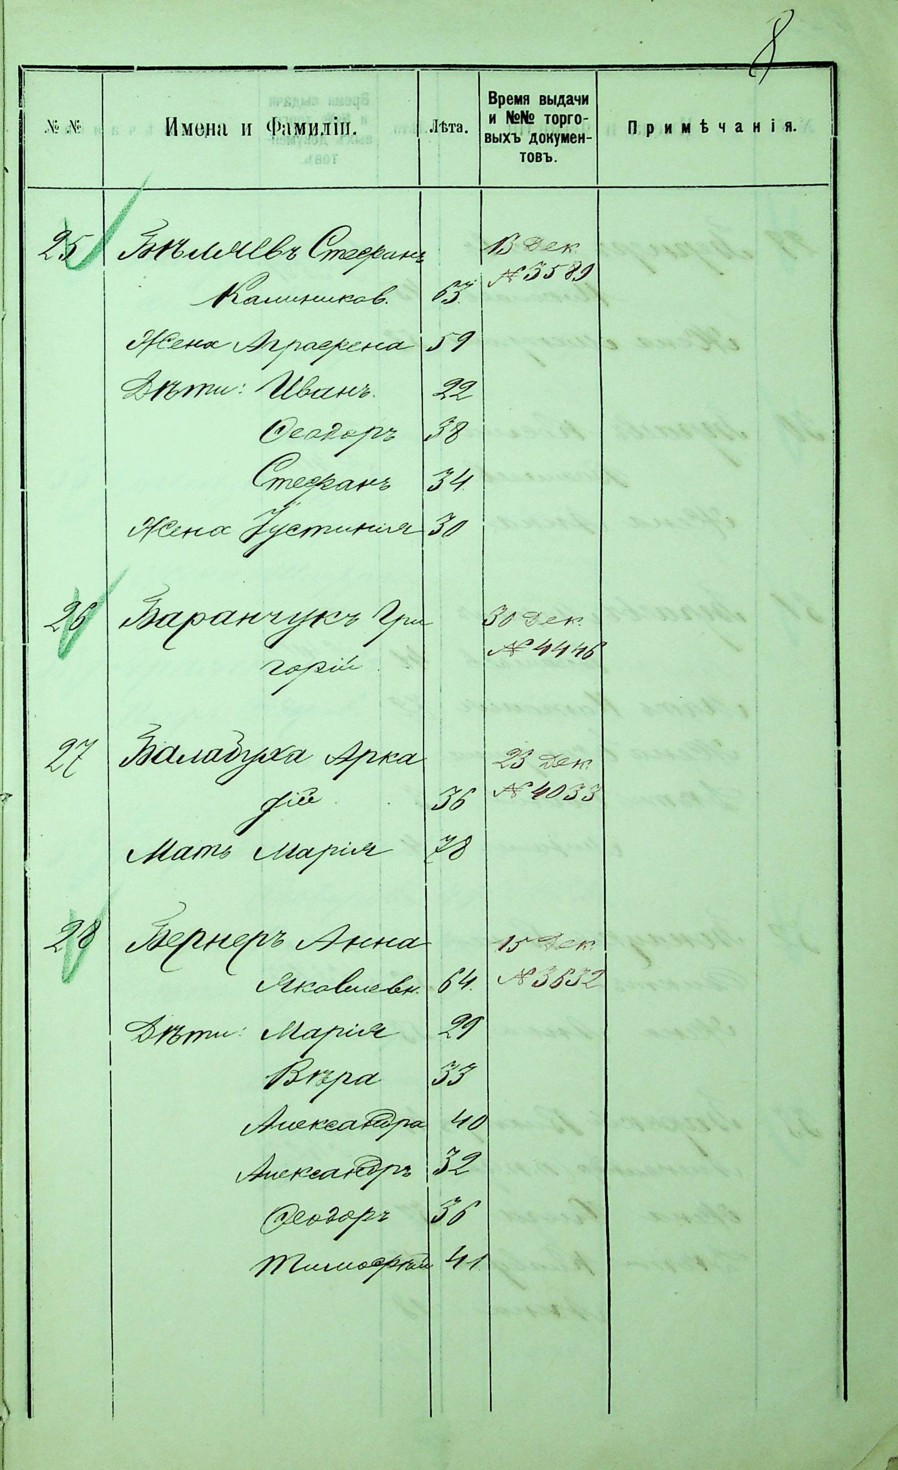 8
№ №
Имена и Фамиліи.
Лѣта.
Время выдачи
и №№ торго-
выхъ докумен-
товъ.
Примѣчанія.
25 Бѣляевъ Стефанъ 13 Дек
Калиников. 63 № 3589
Жена Аграфена 59
Дѣти: Иванъ. 22
Ѳеодоръ 38
Стефанъ 34.
Жена Іустинія 30
26 Баранчукъ Гри 30 Дек.
горій № 4446
27 Балабуха Арка 23 Дек
дій 36 № 4033
Мать Марія 78
28 Вернеръ Анна 15 Дек.
Яковлевн. 64. № 3632
Дѣти: Марія 29
Вѣра 33
Александра 40
Александръ 32
Ѳеодоръ 36
Тимофѣй 41.